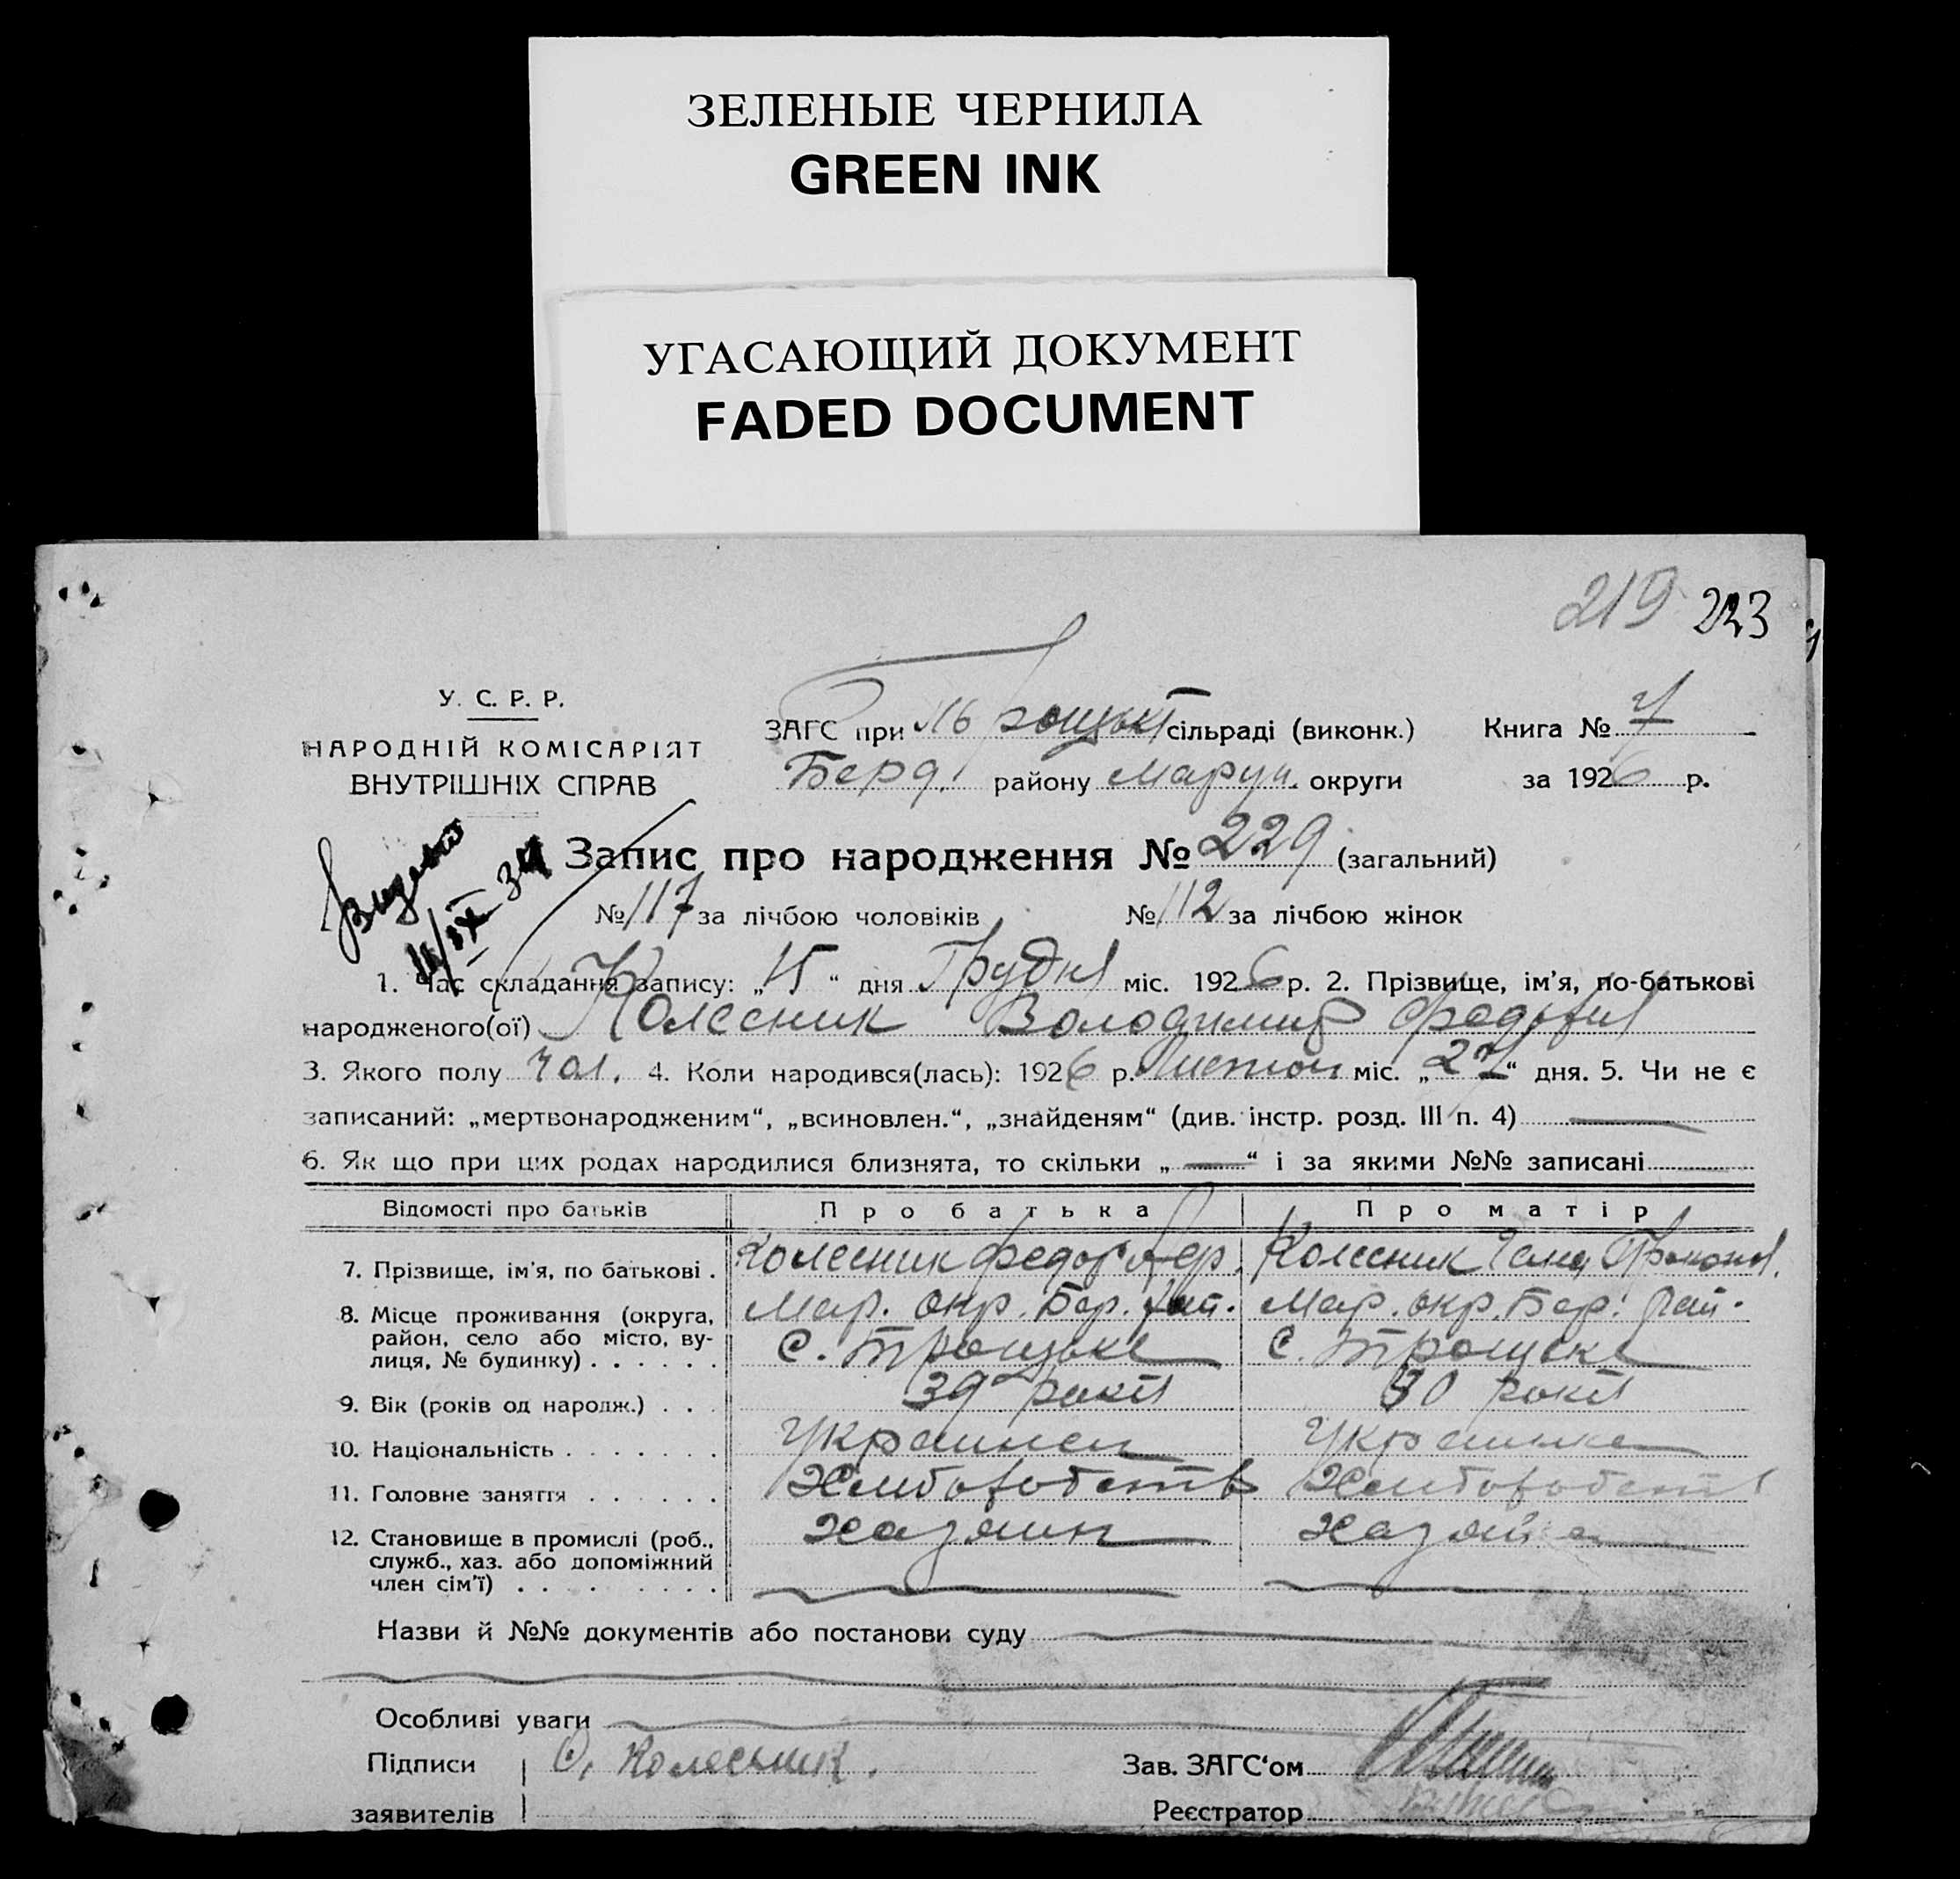 ЗЕЛЕНЫЕ ЧЕРНИЛА
GREEN INK
УГАСАЮЩИЙ ДОКУМЕНТ
FADED DOCUMENT
219 223
У. С. Р. Р.
НАРОДНІЙ КОМІСАРІЯТ
ВНУТРІШНІХ СПРАВ
ЗАГС при сільраді (виконк.)
Берд. району Маруп. округи
Книга № 4
за 1926 р.
Запис про народження № 229 (загальний)
№ 117 за лічбою чоловіків № 112 за лічбою жінок
1. Час складання запису: „15“ дня Грудня міс. 1926 р. 2. Прізвище, ім’я, по-батькові
народженого(ої) Колесник Володимир Федорів
3. Якого полу чол. 4. Коли народився(лась): 1926 р. Листоп міс. „27“ дня. 5. Чи не є
записаний: „мертвонародженим“, „всиновлен.“, „знайденям“ (див. інстр. розд. III п. 4)
6. Як що при цих родах народилися близнята, то скільки „ “ і за якими №№ записані
Відомості про батьків Про батька Про матір
7. Прізвище, ім’я, по батькові . Колесник Федор Колесник
8. Місце проживання (округа, Мар. окр. Бер. Рай. Мар. окр. Бер. Рай.
район, село або місто, ву- с. Троцьке с. Троцьке
лиця, № будинку) . . . . . .
9. Вік (років од народж.) . . . 39 років 30 років
10. Національність . . . . . . . Українец Українка
11. Головне заняття . . . . . . Хлиборобств Хлиборобств
12. Становище в промислі (роб., Хазяин Хазяйка
служб., хаз. або допоміжний
член сім’ї) . . . . . . . .
Назви й №№ документів або постанови суду
Особливі уваги
Підписи Колесник. Зав. ЗАГС‘ом
заявителів Реєстратор